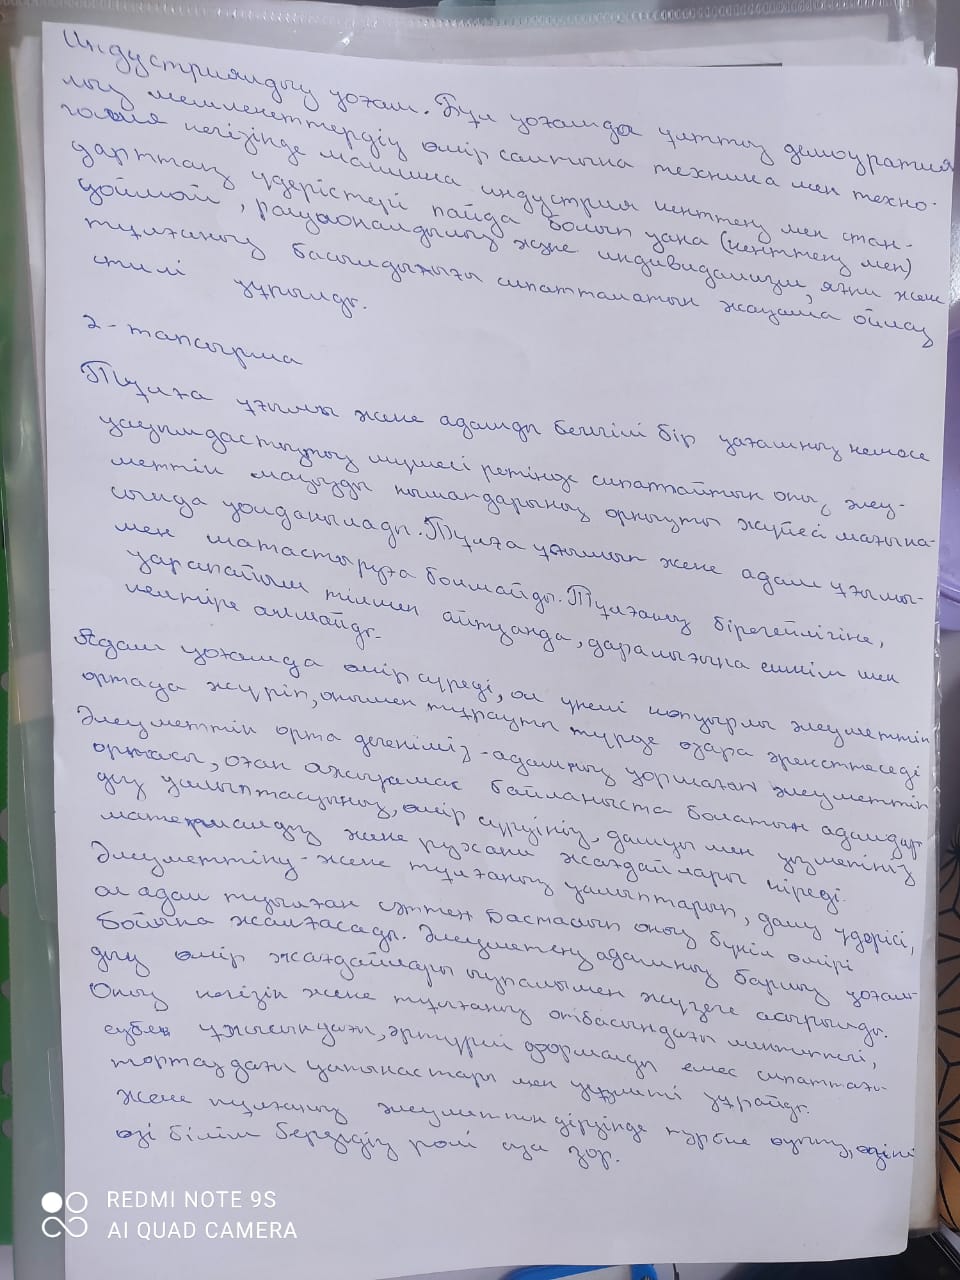 Индустриялдық қоғам. Бұл қоғамда ұлттық демократия
лық мемлекеттердің өмір салтына техника мен техно-
гогия негізінде машина индустрия кенттену мен стан-
дарттау үдерістері пайда болып қана (кенттену мен)
қоймай, рационалдылық және индивидализм, яғни жеке
тұлғаның басымдылығы сипатталатын жаңаша ойлау
стилі құрылды.
2-тапсырма
Тұлға ұғымы және адамды белгілі бір қоғамның немесе
қауымдастықтың мүшесі ретінде сипаттайтын оның әлеу-
меттік маңызды нышандарының орнықты жүйесі мағына-
сында қолданылады. Тұлға ұғымын және адам ұғымы-
мен шатастыруға болмайды. Тұлғаның бірегейлігіне,
қарапайым тілмен айтқанда, даралығына ешкім шек
келтіре алмайды.
Адам қоғамда өмір сүреді, ол үнемі көпқырлы әлеуметтік
ортада жүріп, онымен тұрақты түрде өзара әрекеттеседі
Әлеуметтік орта дегеніміз - адамның қоршаған әлеуметтік
ортасы, оған ажырамас байланыста болатын адамдар
дың қалыптасуының, өмір сүруінің, дамуы мен қызметінің
материалдық және рухани жағдайлары кіреді.
Әлеуметтіну - және тұлғаның қалыптарып, даму үдерісі,
ол адам туылған сәттен бастасып оның бүкіл өмірі
бойына жалғасады. Әлеуметену адамның барлық қоғам-
дық өмір жағдайлары ықпалымен жүзеге асырылды.
Оның негізін және тұлғаның отбасындағы
еңбек ұжысындағы, әртүрлі формалды емес сипаттағы
тортаудағы қатынастары мен құрайды.
және тұлғаның әлеуметтендірүінде түрбие өзінің, өзіні
өзі білім берудің ролі аса зор.
REDMI NOTE 9S
AI QUAD CAMERA